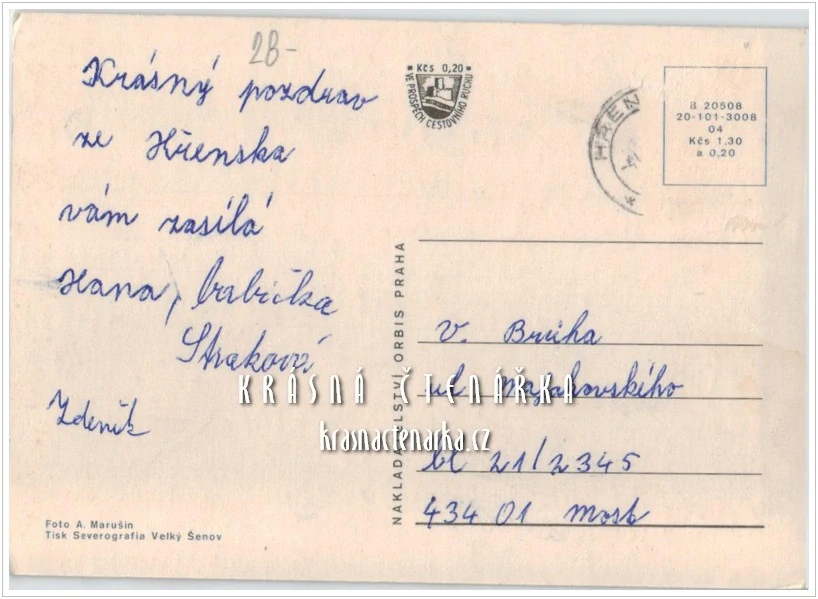 2B-
Krásný pozdrav
ze Hřenska
vám zasílá
Hana, babička
Straková
Zdeněk
Foto A. Marušin
Tisk Severografia Velký Šenov
Kčs 0,20
VE PROSPĚCH CESTOVNÍHO RUCHU
NAKLADATELSTVÍ ORBIS PRAHA
HŘEN
B 20508
20-101-3008
04
Kčs 1,30
a 0,20
V. Brůha
ul
bl 21/2345
434 01 Most
KRÁSNÁ ČTENÁŘKA
krasnactenarka.cz